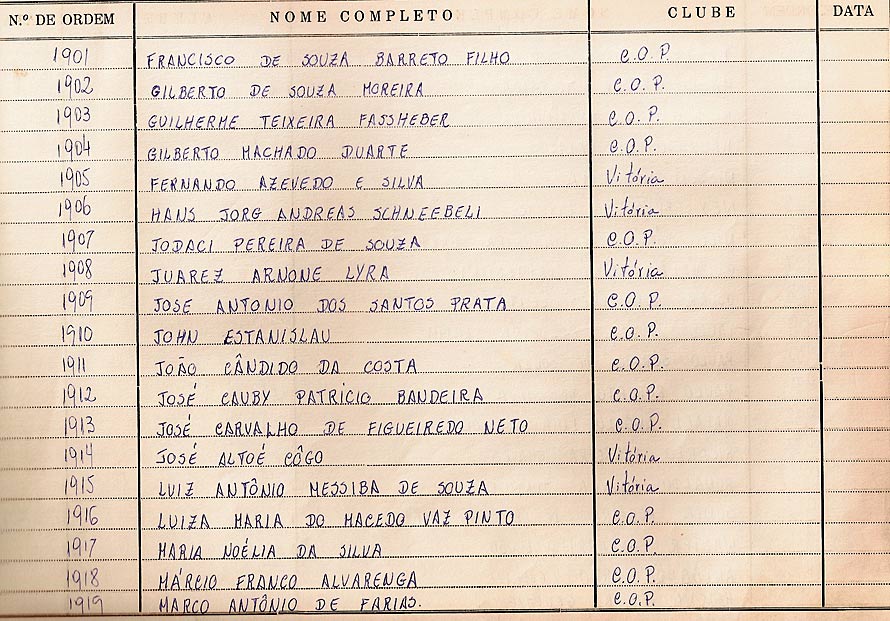 N.º DE ORDEM NOME COMPLETO CLUBE DATA
1901 FRANCISCO DE SOUZA BARRETO FILHO C.O.P.
1902 GILBERTO DE SOUZA MOREIRA C.O.P.
1903 GUILHERME TEIXEIRA FASSHEBER C.O.P.
1904 GILBERTO MACHADO DUARTE C.O.P.
1905 FERNANDO AZEVEDO E SILVA Vitória
1906 HANS JORG ANDREAS SCHNEEBELI Vitória
1907 JODACI PEREIRA DE SOUZA C.O.P.
1908 JUAREZ ARNONE LYRA Vitória
1909 JOSE ANTONIO DOS SANTOS PRATA C.O.P.
1910 JOHN ESTANISLAU C.O.P.
1911 JOÃO CÂNDIDO DA COSTA C.O.P.
1912 JOSÉ CAUBY PATRÍCIO BANDEIRA C.O.P.
1913 JOSÉ CARVALHO DE FIGUEIREDO NETO C.O.P.
1914 JOSÉ ALTOÉ CÔGO Vitória
1915 LUIZ ANTÔNIO MESSIBA DE SOUZA Vitória
1916 LUIZA MARIA DO MACEDO VAZ PINTO C.O.P.
1917 MARIA NOÉLIA DA SILVA C.O.P.
1918 MÁRCIO FRANCO ALVARENGA C.O.P.
1919 MARCO ANTÔNIO DE FARIAS. C.O.P.